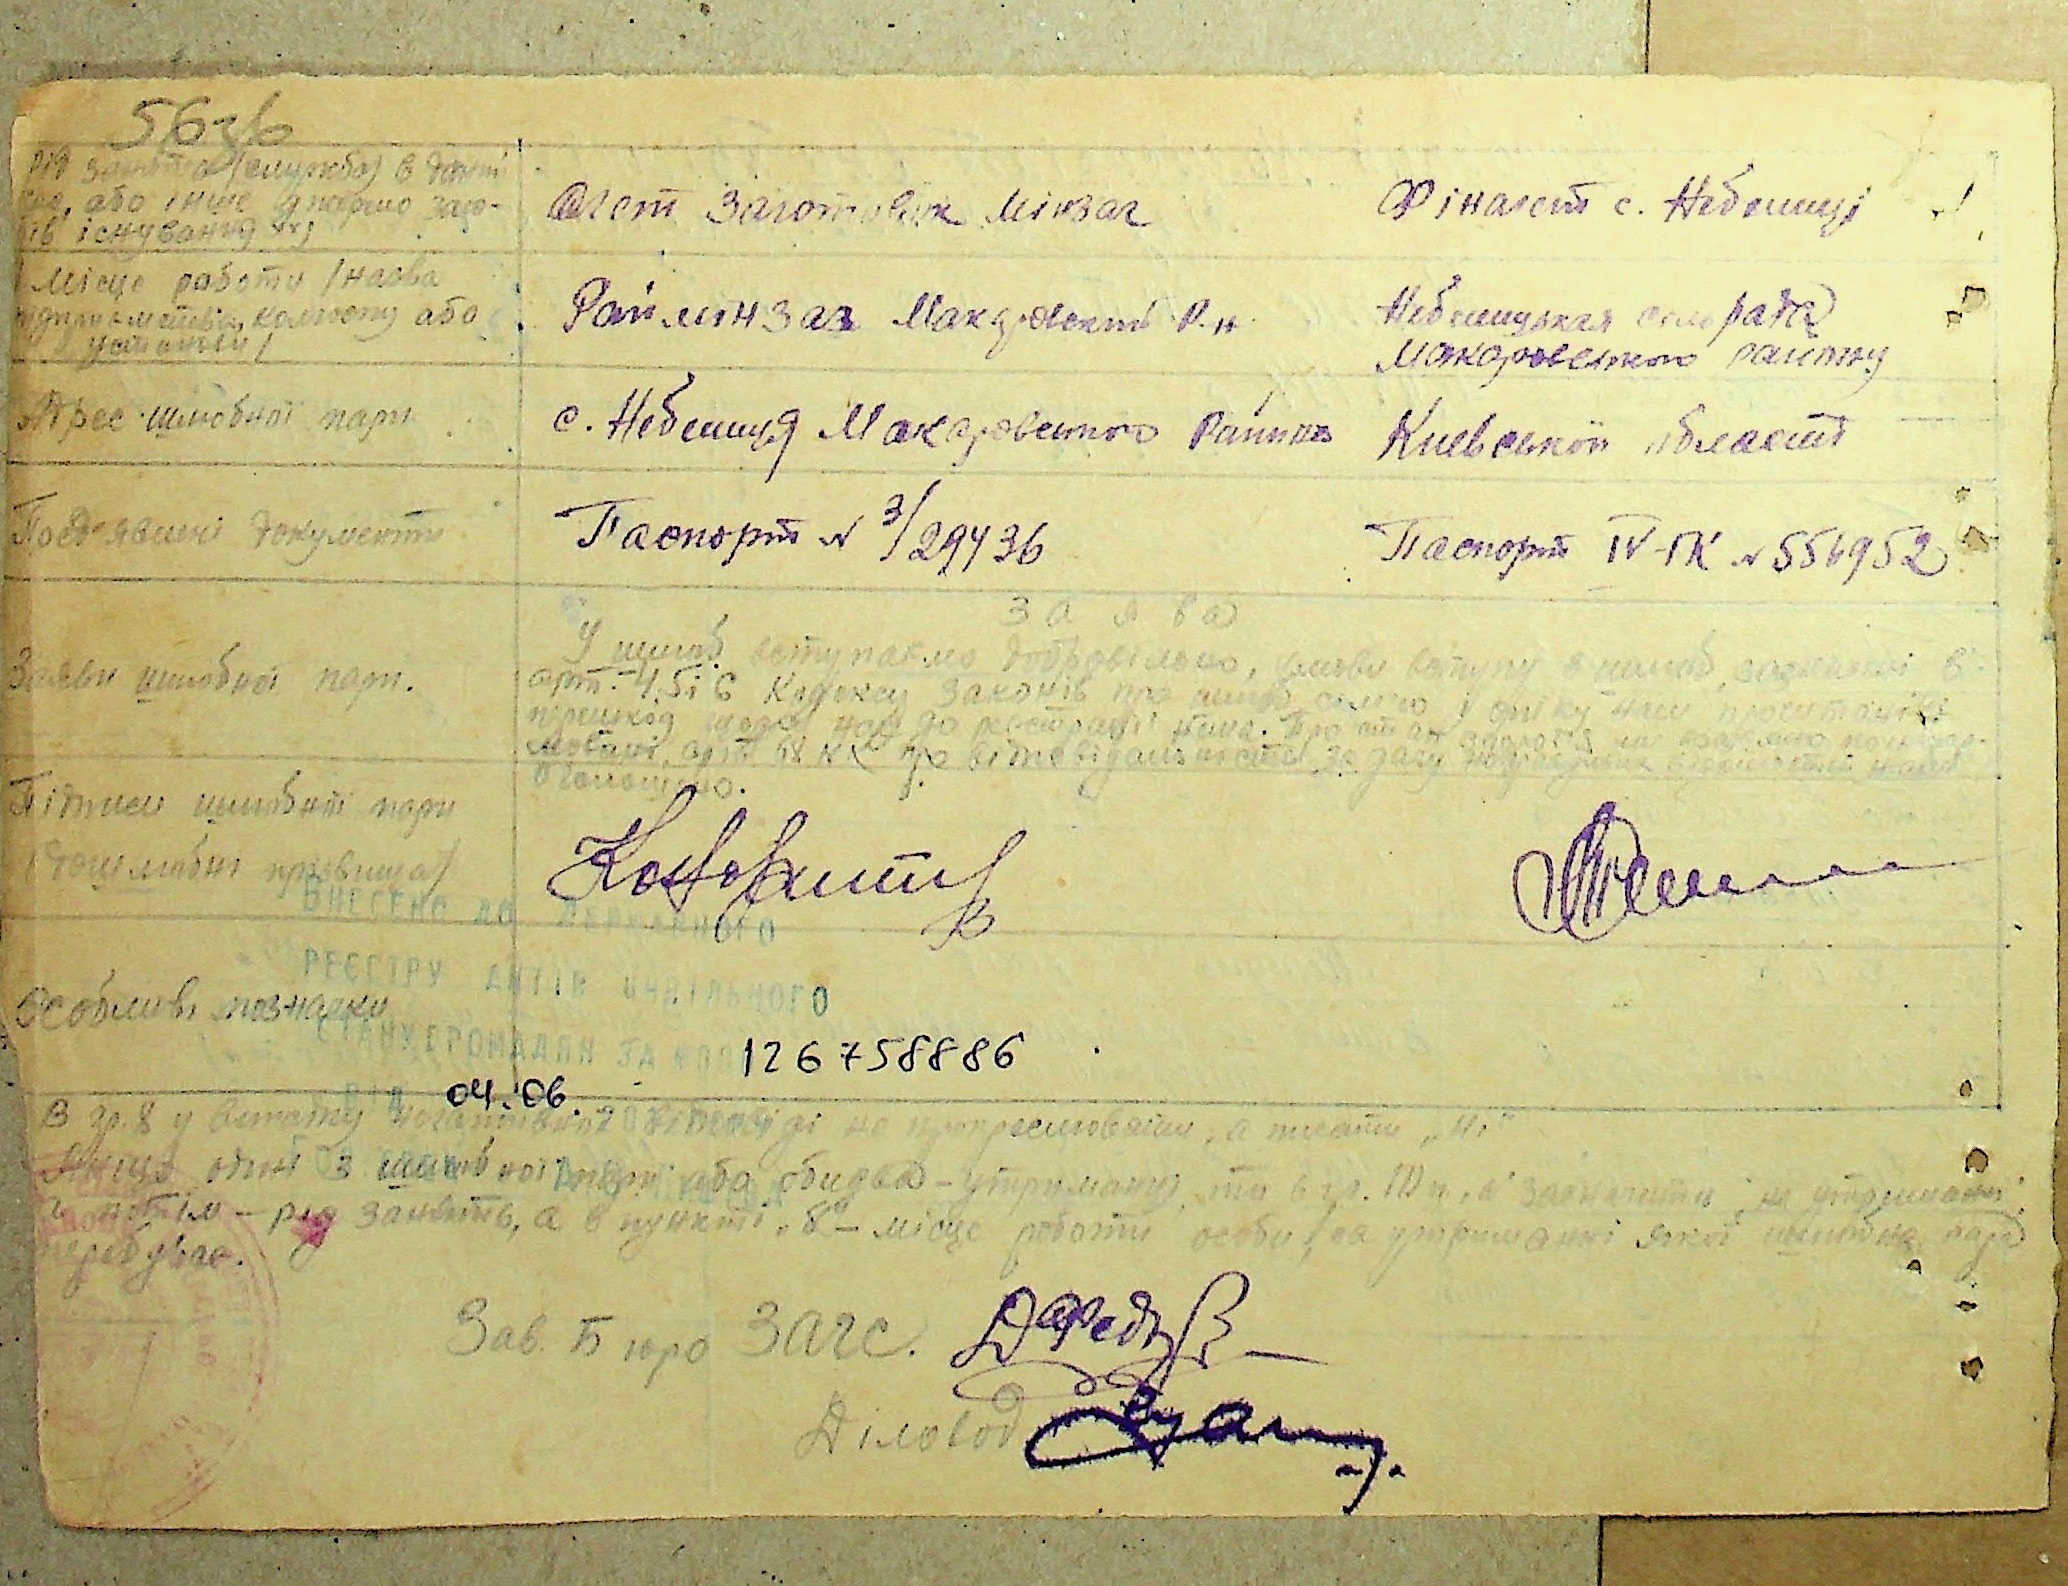 56зв
Рід заняття (служба) в дані
час, або інше джерело засо-
бів існування
Агент Заготовок Мінзаг
Фінагент с. Небелиці
Місце работи /назва
підприємства, колгоспу або
установи/
Раймінзаг Макаровский Р-н
Небелицькая сельрада
Макаровського району
Адрес шлюбної пари
с. Небелиця Макаровського Району
Киевської області
Пред'явлені документи
Паспорт № 3/29436
Паспорт IV-ГК № 556952
Заяви шлюбної пари.
Заява
У шлюб вступаємо добровільно, умови вступу в шлюб, зазначені в
арт. 4, 5 і 6 Кодексу Законів про шлюб, сем'ю і опіку нам прочитані і
перешкод щодо нас до реєстрації нема. Про стан здоров'я ми взаємно поінфор-
мовані, арт. КК про відповідальність за дачу неправдивих відомостей нам
оголошено.
Підписи шлюбної пари
(дошлюбні прізвища)
Особливі познаки
ВНЕСЕНО ДО ДЕРЖАВНОГО
РЕЄСТРУ АКТІВ ЦИВІЛЬНОГО
СТАНУ ГРОМАДЯН ЗА
126758886
04.06.
В гр. 8 у випадку негативної відповіді не прокреслювати, а писати „Ні“
Якщо один з шлюбної пари або обидва - утриманці, то в гр. 10 п. а зазначити на утриманні
і потім - рід занять, а в пункті „б“ - місце роботи особи, на утриманні якої шлюбна пара
перебуває.
Зав. Бюро ЗАГС.
Діловод